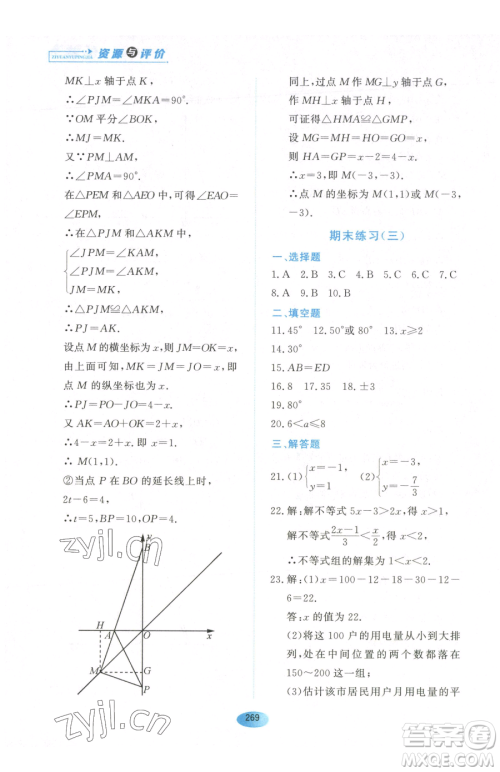 资源与评价
MK⊥x 轴于点 K,
∴∠PJM=∠MKA=90°.
∵OM 平分∠BOK,
∴MJ=MK.
又∵PM⊥AM,
∴∠PMA=90°.
在△PEM 和△AEO 中,可得∠EAO=
∠EPM,
∴在△PJM 和△AKM 中,
∠JPM=∠KAM,
∠PJM=∠AKM,
JM=MK.
∴△PJM≌△AKM.
∴PJ=AK.
设点 M 的横坐标为 x,
由上面可知,MK=JM=OK=x,
即点 M 的纵坐标为 x.
∴PJ=PO-OJ=4-x.
又∵AK=AO+OK=2+x,
∴4-x=2+x,即 x=1.
∴M(1,1).
②当点 P 在 BO 的延长线上时,
2t-6=4,
∴t=5,BP=10,PO=4.
y
B
H
A
O
x
M
G
P
同上,过点 M 作 MG⊥y 轴于点 G,
作 MH⊥x 轴于点 H,
可证得△HMA≌△GMP.
设 MG=MH=HO=OG=x,
则 HA=GP=x-2=4-x.
∴x=3,即 M(-3,-3).
∴点 M 的坐标为 M(1,1)或 M(-3,
-3).
期末练习(三)
一、选择题
1.A 2.B 3.C 4.B 5.C 6.C 7.C
8.A 9.B 10.B
二、填空题
11.45° 12.50°或80° 13.-6
14.30°
15.AB=ED
16.8 17.35 18.±3
19.80°
20.6<a≤8
三、解答题
21.(1){x=-1, y=1 (2){x=-3, y=-7/3
22.解:解不等式 5x-3>2x,得 x>1,
解不等式 (2x-1)/3<x/2,得 x<2.
∴不等式组的解集为 1<x<2.
23.解:(1)x=100-12-18-30-12-
6=22.
答:x 的值为 22.
(2)将这 100 户的用电量从小到大排
列,处在中间位置的两个数都在
150~200 这一组;
(3)估计该市居民用户月用电量的平
269
zyjl.cn
zyjl.cn
作业精灵